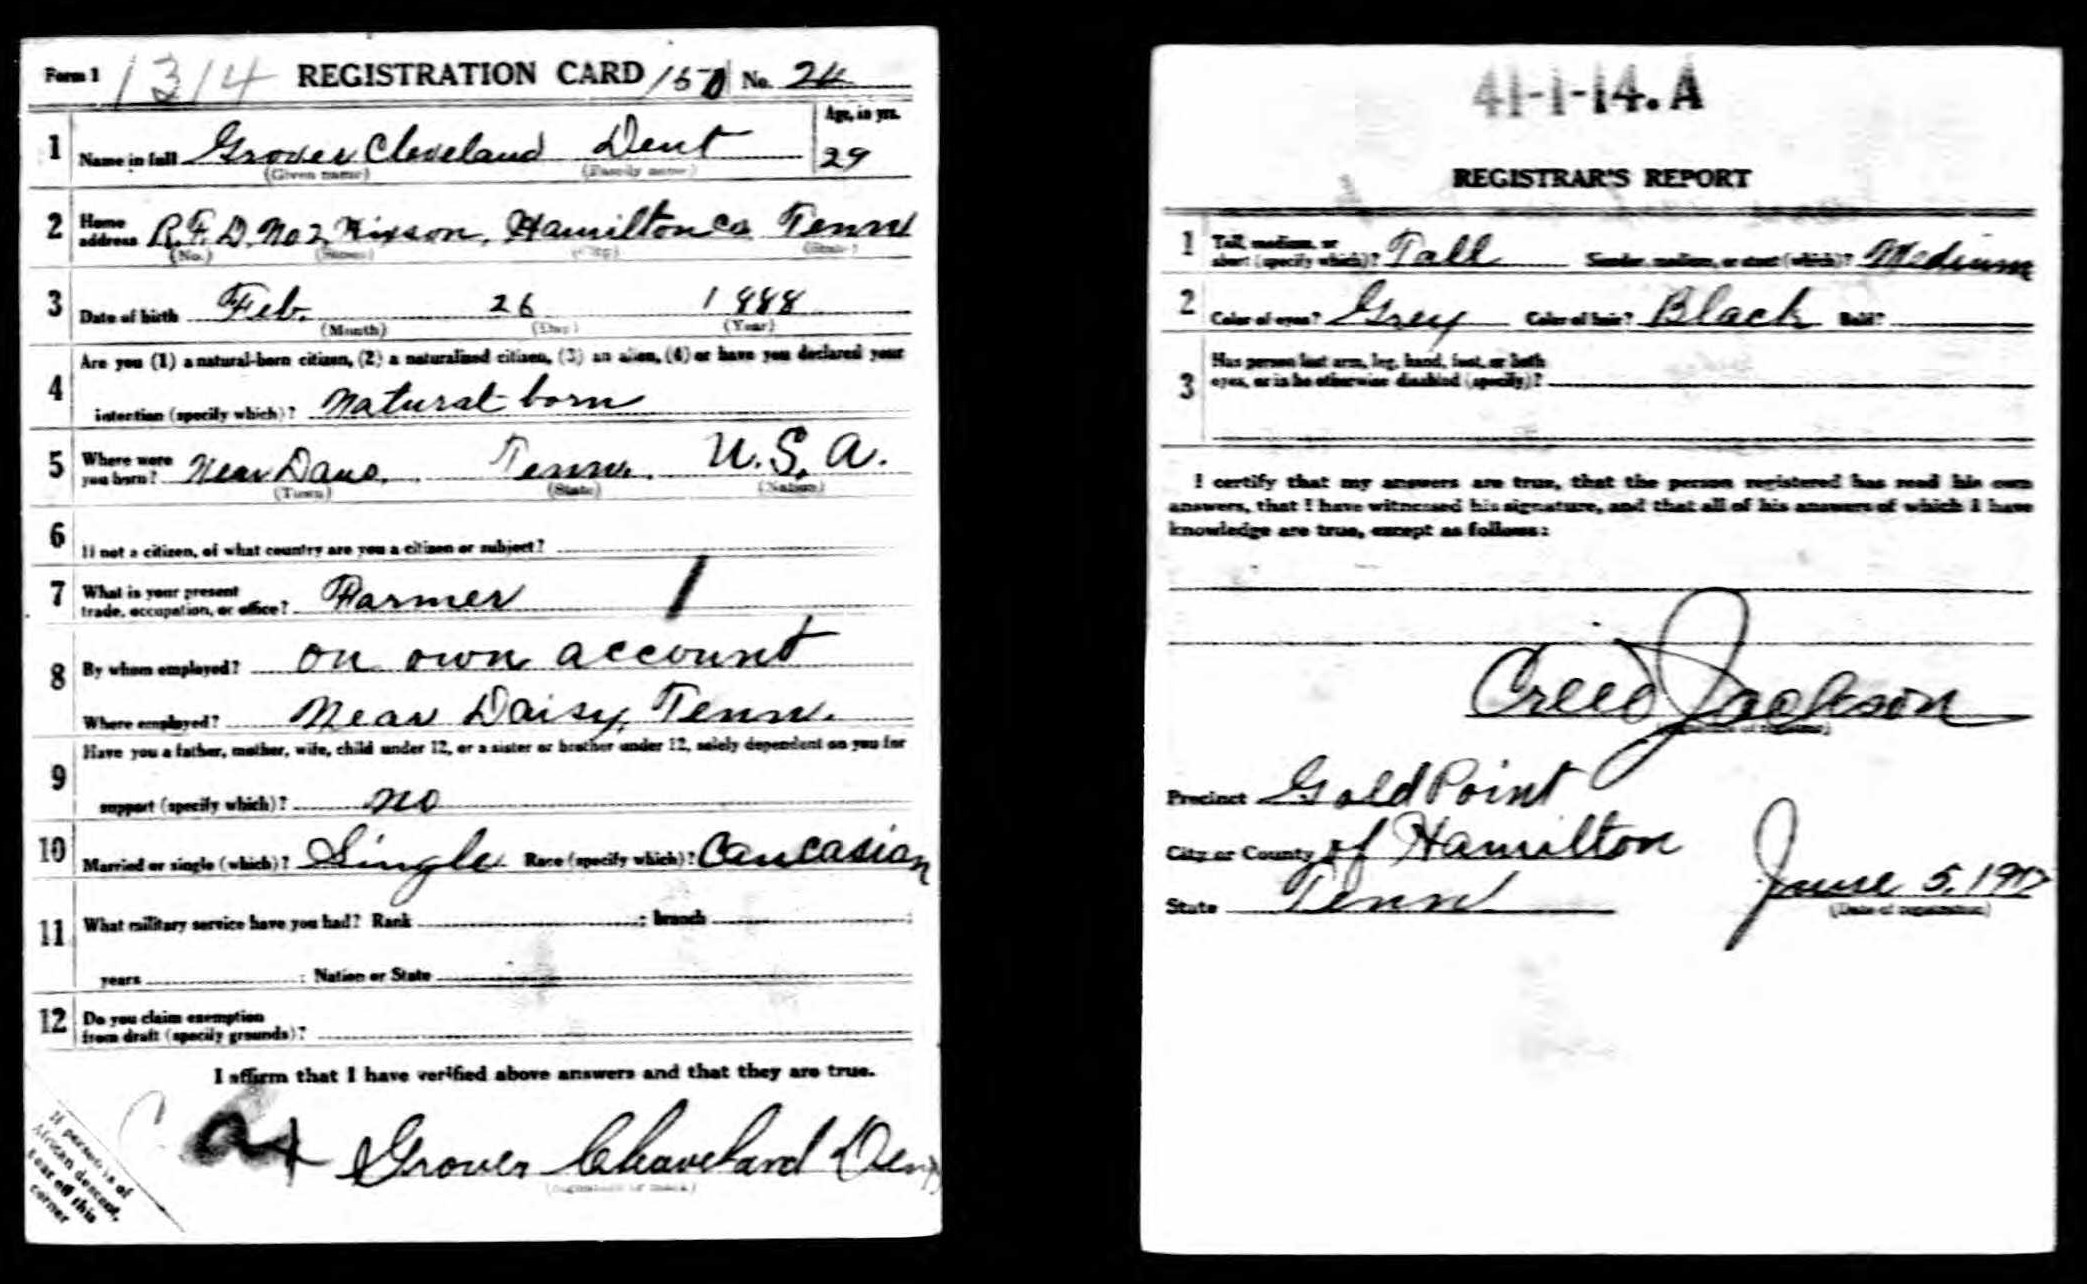 Form 1 1314 REGISTRATION CARD 150 No. 24
1 Name in full Grover Cleveland Dent Age, in yrs. 29
(Given name) (Family name)
2 Home address R.F.D. No 2 Hixson, Hamilton Co Tenn
(No.) (Street) (City) (State)
3 Date of birth Feb. 26 1888
(Month) (Day) (Year)
4 Are you (1) a natural-born citizen, (2) a naturalized citizen, (3) an alien, (4) or have you declared your
intention (specify which)? Natural born
5 Where were you born? Near Tenn. U.S.A.
(Town) (State) (Nation)
6 If not a citizen, of what country are you a citizen or subject?
7 What is your present
trade, occupation, or office? Farmer
8 By whom employed? on own account
Where employed? Near Daisy, Tenn.
9 Have you a father, mother, wife, child under 12, or a sister or brother under 12, solely dependent on you for
support (specify which)? No
10 Married or single (which)? Single Race (specify which)? Caucasian
11 What military service have you had? Rank ; branch ;
years ; Nation or State
12 Do you claim exemption
from draft (specify grounds)?
I affirm that I have verified above answers and that they are true.
Grover Cleaveland Dent
(Signature or mark)
If person is of
African descent,
tear off this
corner
41-1-14. A
REGISTRAR'S REPORT
1 Tall, medium, or
short (specify which)? Tall Slender, medium, or stout (which)? Medium
2 Color of eyes? Grey Color of hair? Black Bald?
3 Has person lost arm, leg, hand, foot, or both
eyes, or is he otherwise disabled (specify)?
I certify that my answers are true, that the person registered has read his own
answers, that I have witnessed his signature, and that all of his answers of which I have
knowledge are true, except as follows:
Creed Jackson
(Signature of registrar)
Precinct Gold Point
City or County of Hamilton
State Tenn June 5, 1917
(Date of registration)